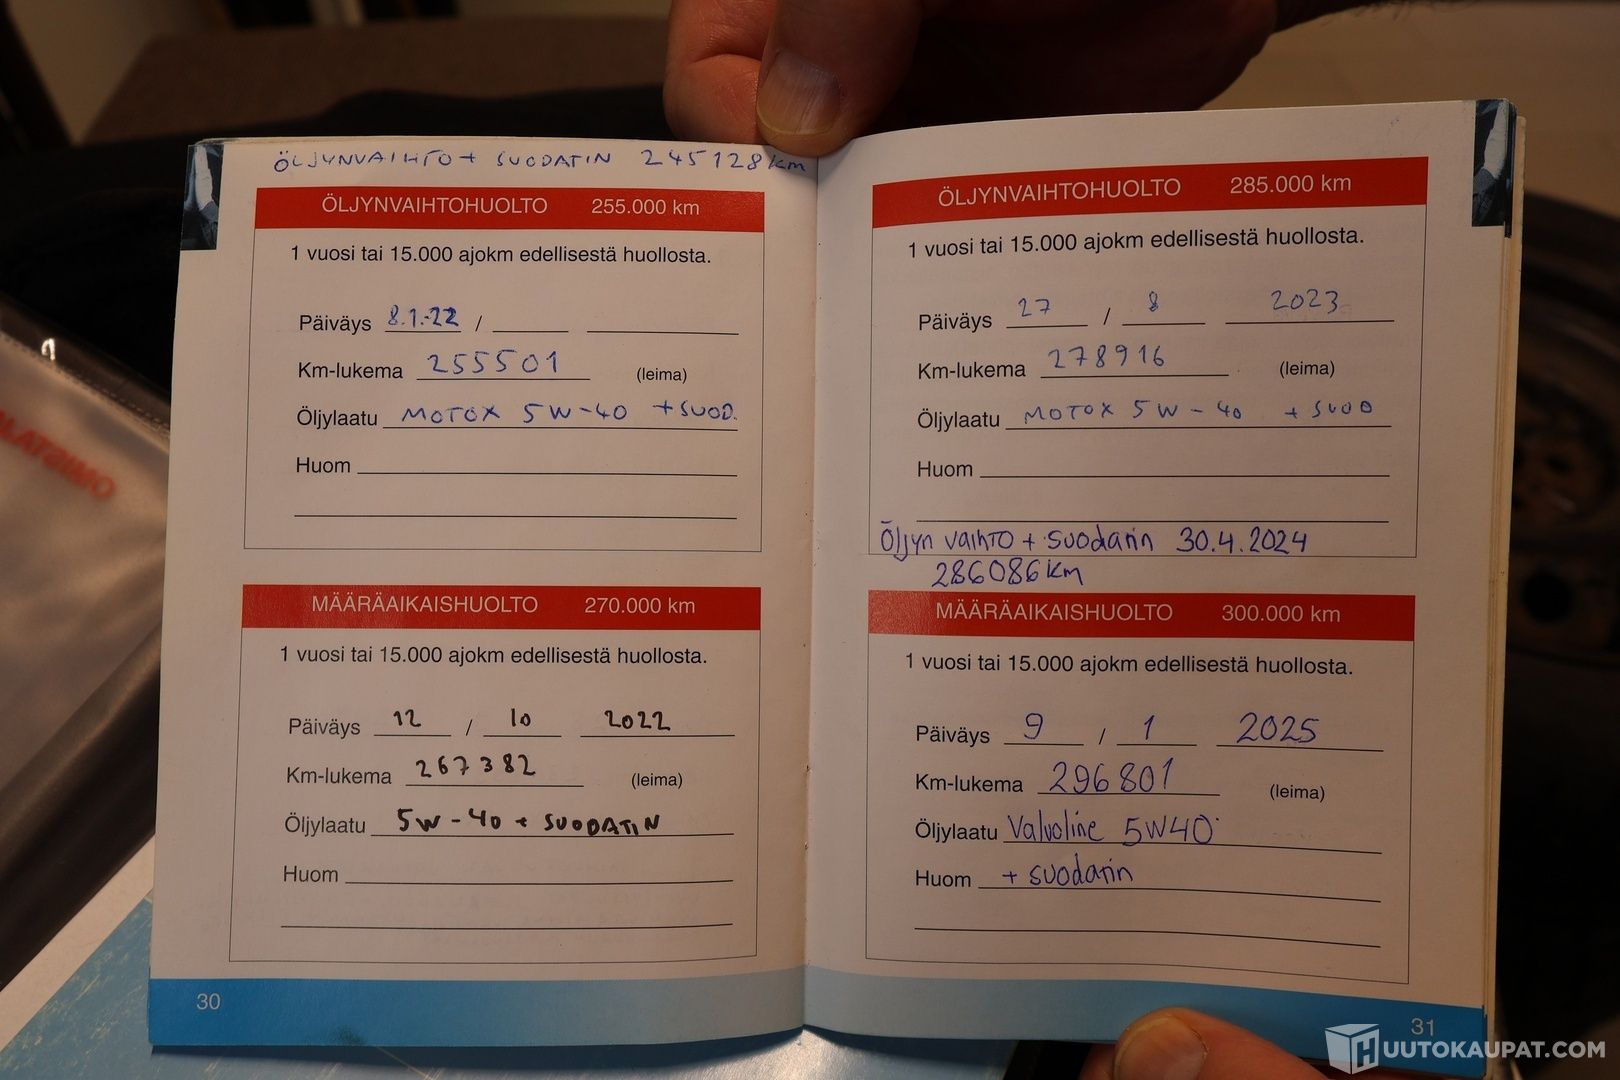 ÖLJYNVAIHTO + SUODATIN 245128 km
ÖLJYNVAIHTOHUOLTO 255.000 km
1 vuosi tai 15.000 ajokm edellisestä huollosta.
Päiväys 8.1.22 /
Km-lukema 255501 (leima)
Öljylaatu MOTOX 5W-40 +SUOD.
Huom
MÄÄRÄAIKAISHUOLTO 270.000 km
1 vuosi tai 15.000 ajokm edellisestä huollosta.
Päiväys 12 / 10 2022
Km-lukema 267382 (leima)
Öljylaatu 5W-40 + SUODATIN
Huom
30
ÖLJYNVAIHTOHUOLTO 285.000 km
1 vuosi tai 15.000 ajokm edellisestä huollosta.
Päiväys 27 / 8 2023
Km-lukema 278916 (leima)
Öljylaatu MOTOX 5W-40 + SUOD
Huom
Öljyn vaihto + suodatin 30.4.2024
286086 km
MÄÄRÄAIKAISHUOLTO 300.000 km
1 vuosi tai 15.000 ajokm edellisestä huollosta.
Päiväys 9 / 1 2025
Km-lukema 296801 (leima)
Öljylaatu Valvoline 5W40
Huom + suodatin
31
HUUTOKAUPAT.COM